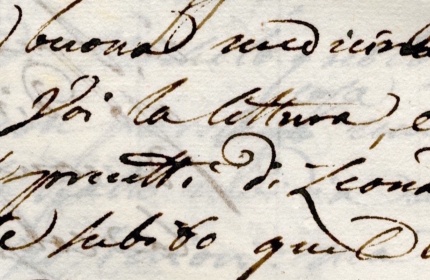 buona medicina
Voi la lettura, e
precetti di Leona
e subito que